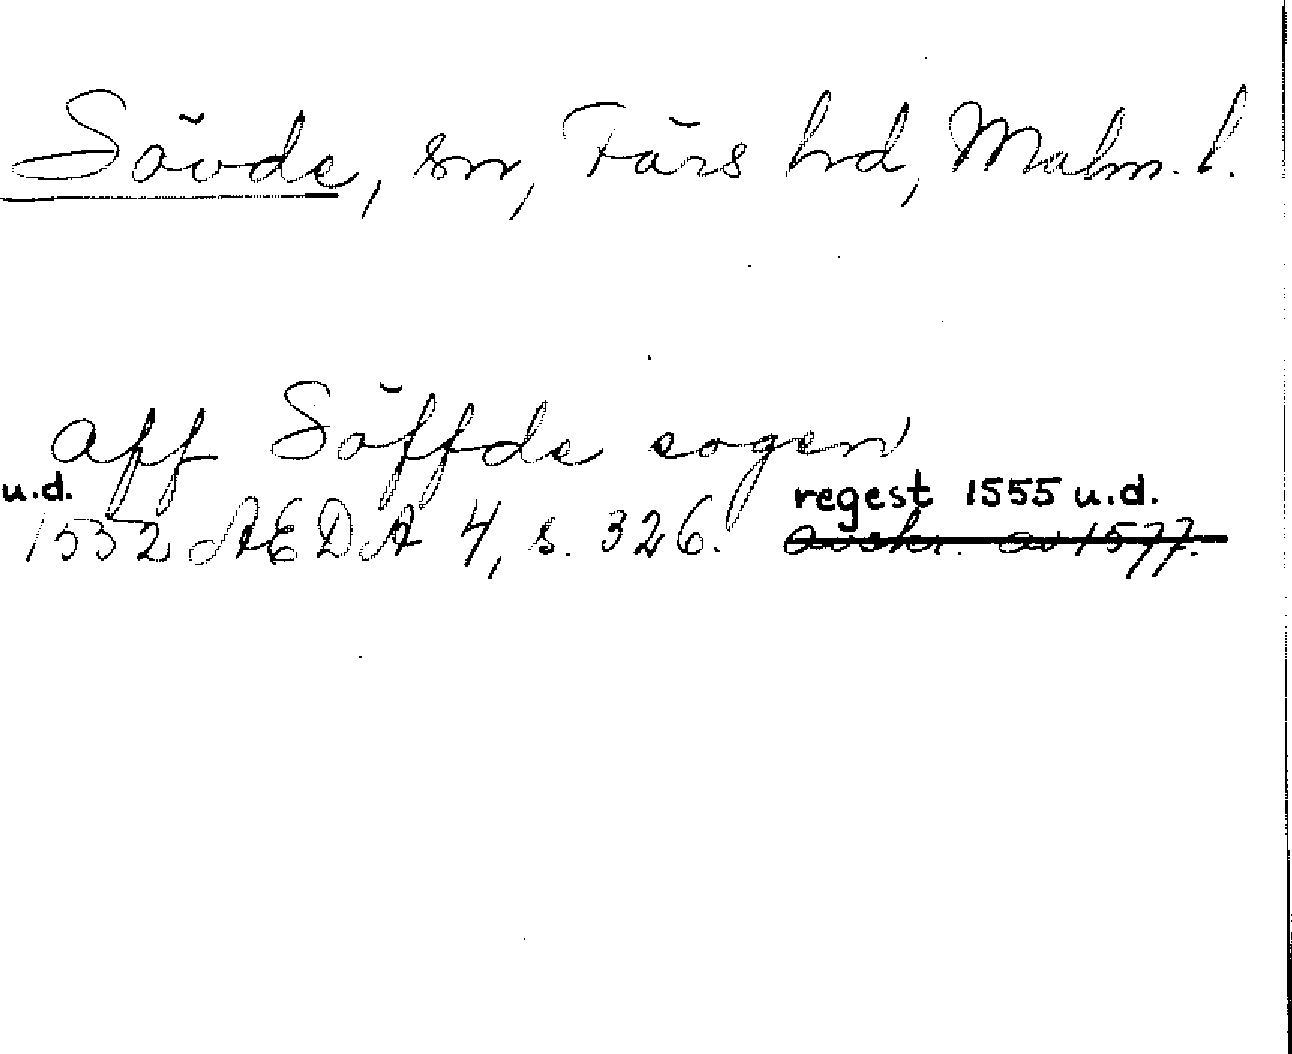 Sövde, sn, Färs hd, Malm. l.
aff Söffde sogen
u.d.
1552 AEDA 4, s. 326. regest 1555 u.d.
avskr. av 1577.